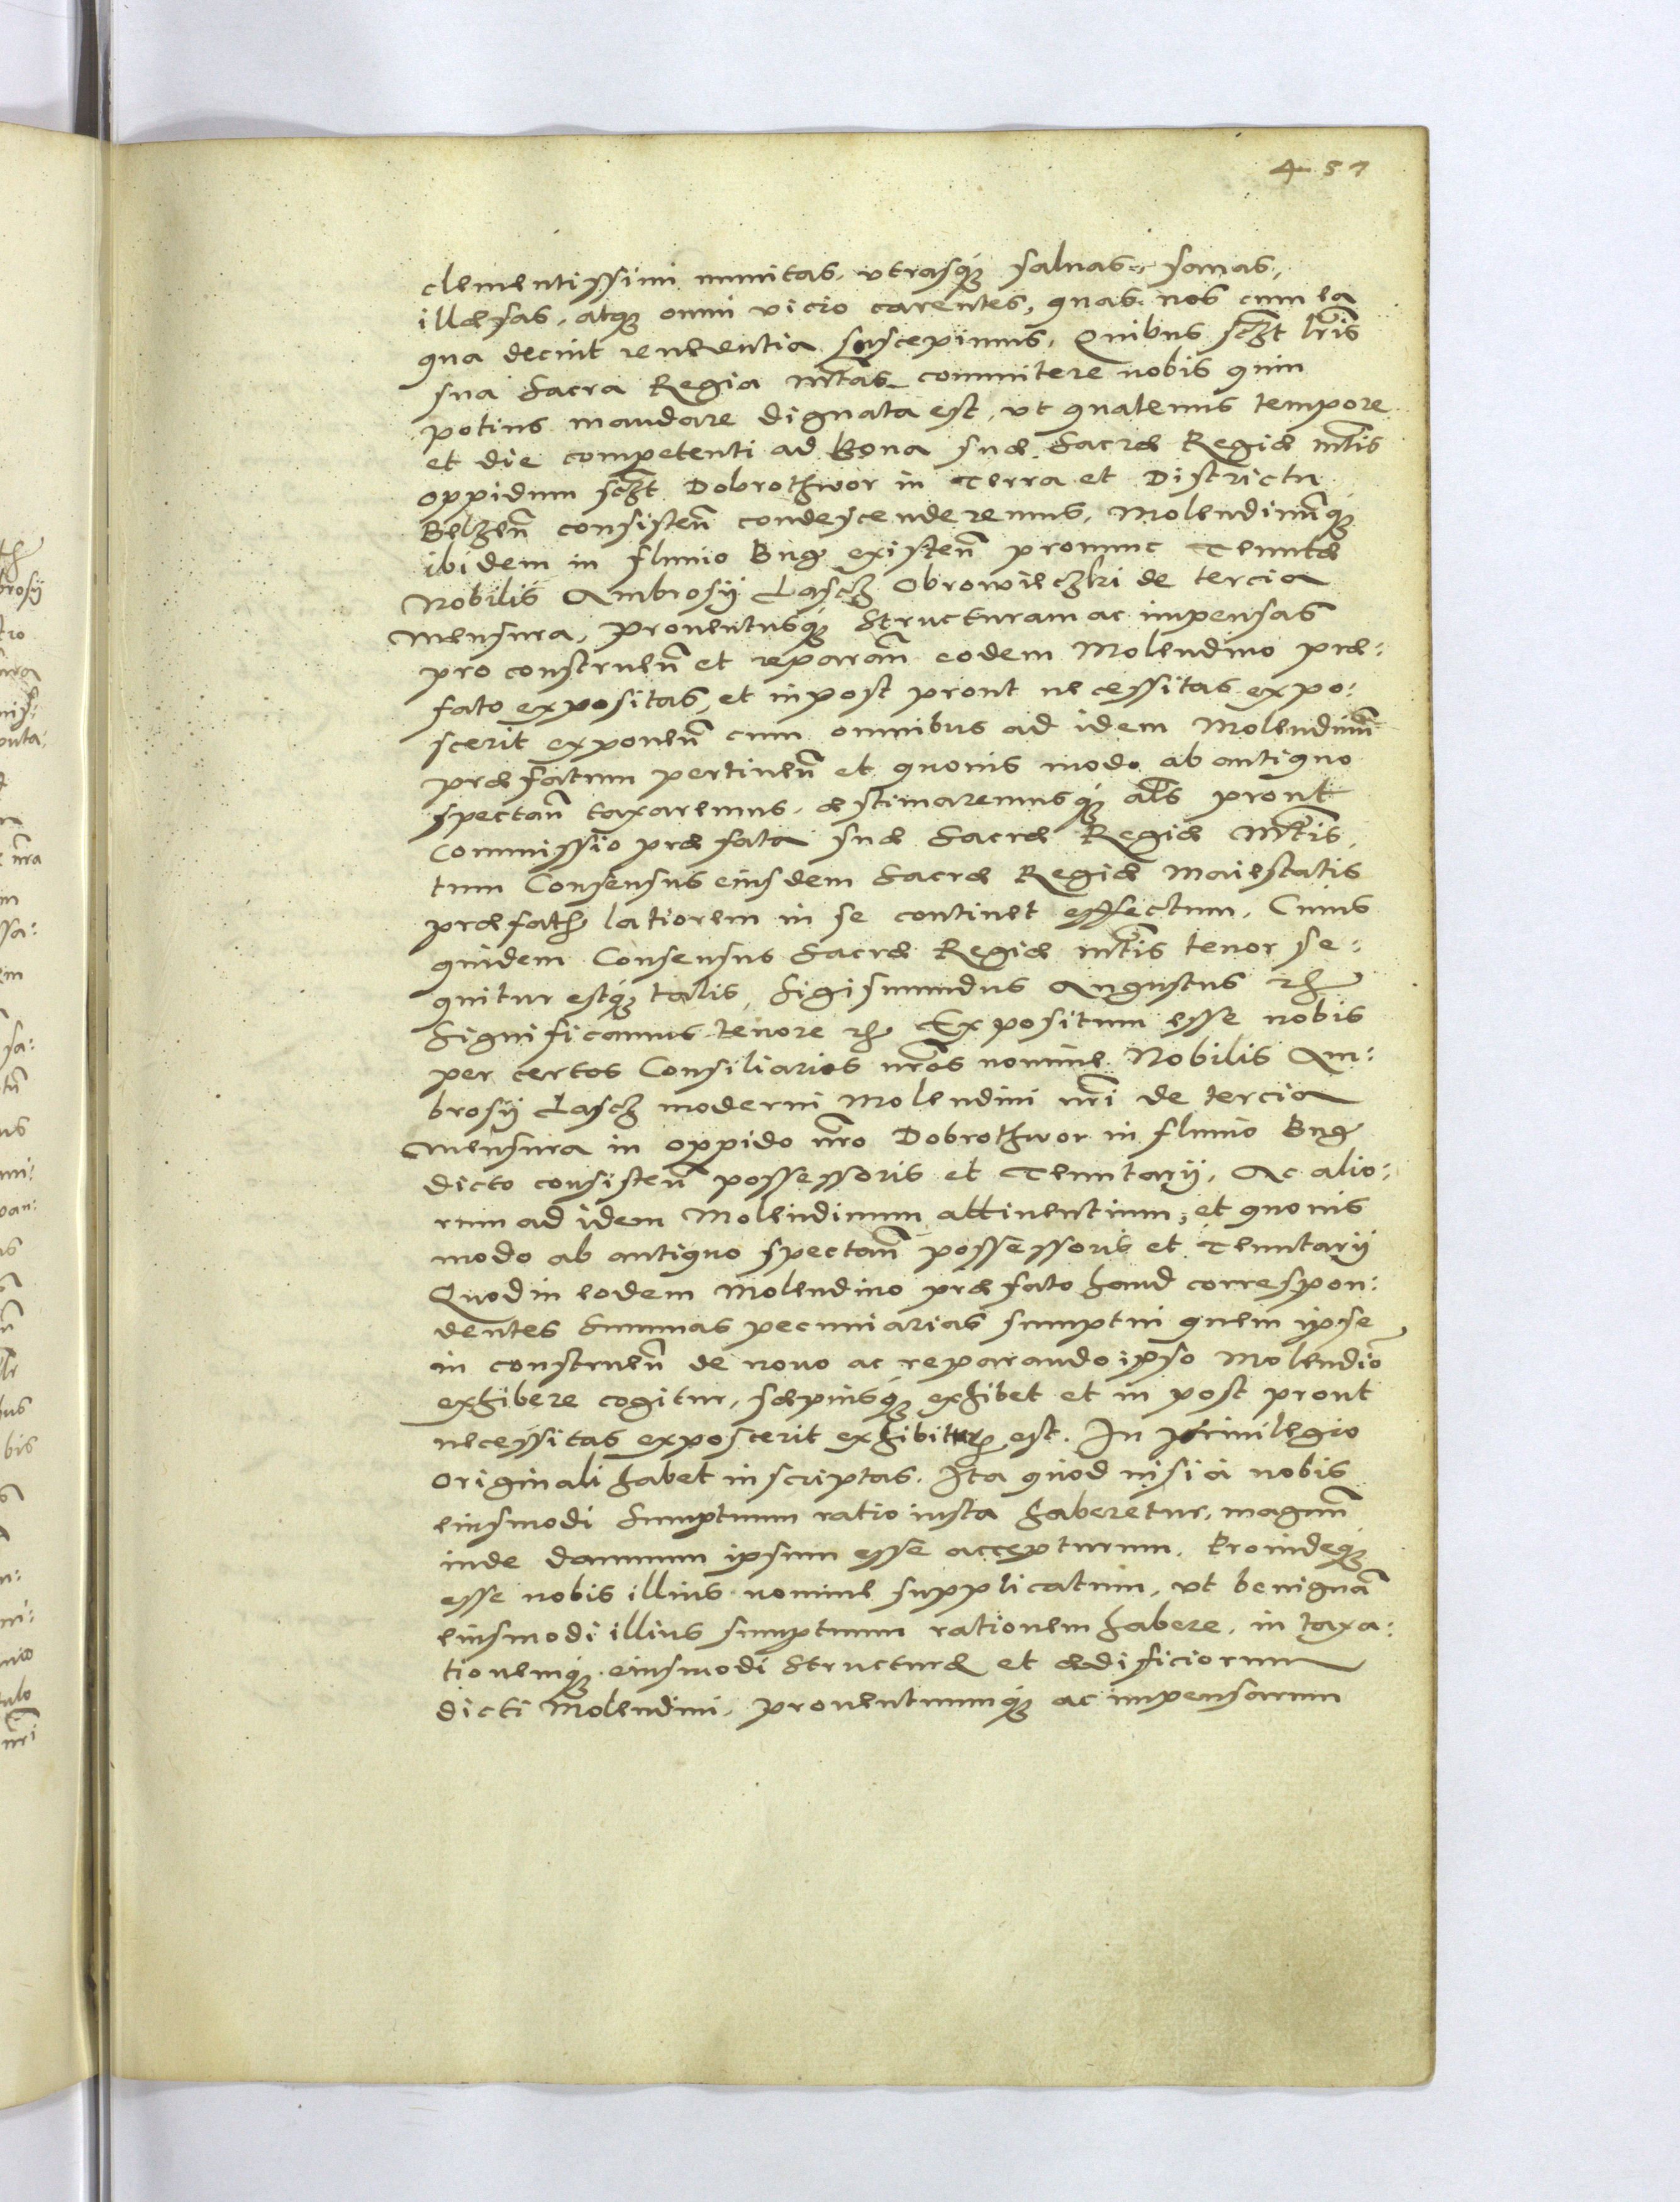 457
clementissimi munitas, vtrasq₃ saluas, sanas,
illæsas, atq₃ omni vicio carentes, quas nos cum ea
qua decuit reuerentia suscepimus, Quibus sczt lris
sua Sacra Regia Mtas committere nobis quin
potius mandare dignata est, vt quatenus tempore
et die competenti ad bona suæ Sacræ Regiæ Mtis
oppidum sczt Dobrothwor in Terra et Districtu
Belzen̄ consisten̄ condescenderemus, Molendinūq₃
ibidem in fluuio Bug existen̄ pronunc Tenutæ
Nobilis Ambrosij Lascz Obrowieczki de tercia
Mensura, Prouentusq₃ Structuram ac impensas
pro construen̄ et reparan̄ eodem Molendino præ:
fato expositas, et inpost prout necessitas expo:
scerit exponen̄ cum omnibus ad idem Molendinū
præfatum pertinen̄ et quouis modo ab antiquo
spectan̄ taxaremus, æstimaremusq₃ als prout
Commissio præfata suæ Sacræ Regiæ Mtis,
tum Consensus eiusdem Sacræ Regiæ Maiestatis
præfatꝫ latiorem in se continet effectum, Cuius
quidem Consensus Sacræ Regiæ Mtis tenor se:
quitur estq₃ talis, Sigismundus Augustus ꝛꝫ
Significamus tenore ꝛꝫ Expositum esse nobis
per certos Consiliarios nr̄os nomine Nobilis Am:
brosij Lascz moderni Molendini nr̄i de tercia
Mensura in oppido nr̄o Dobrothwor in fluuio Bug
dicto consisten̄ possessoris et Tenutarij, Ac alio:
rum ad idem Molendinum attinentium, et quouis
modo ab antiquo spectan̄ possessoris et Tenutarij
Quod in eodem Molendino præfato haud correspon:
dentes Summas pecuniarias sumptui quem ipse
in construen̄ de nouo ac reparando ipso Molendio
exhibere cogitur, sæpiusq₃ exhibet et in post prout
necessitas exposcerit exhibiturꝫ est. In priuilegio
originali habet inscriptas. Ita quod nisi a nobis
eiusmodi Sumptuum ratio iusta haberetur, magnū
inde damnum ipsum esse accepturum, Proindeq₃
esse nobis illius nomine supplicatum, vt benignā
eiusmodi illius sumptuum rationem habere, in taxa:
tionemq₃ eiusmodi Structuræ et ædificiorum
dicti Molendini, prouentuumq₃ ac impensarum